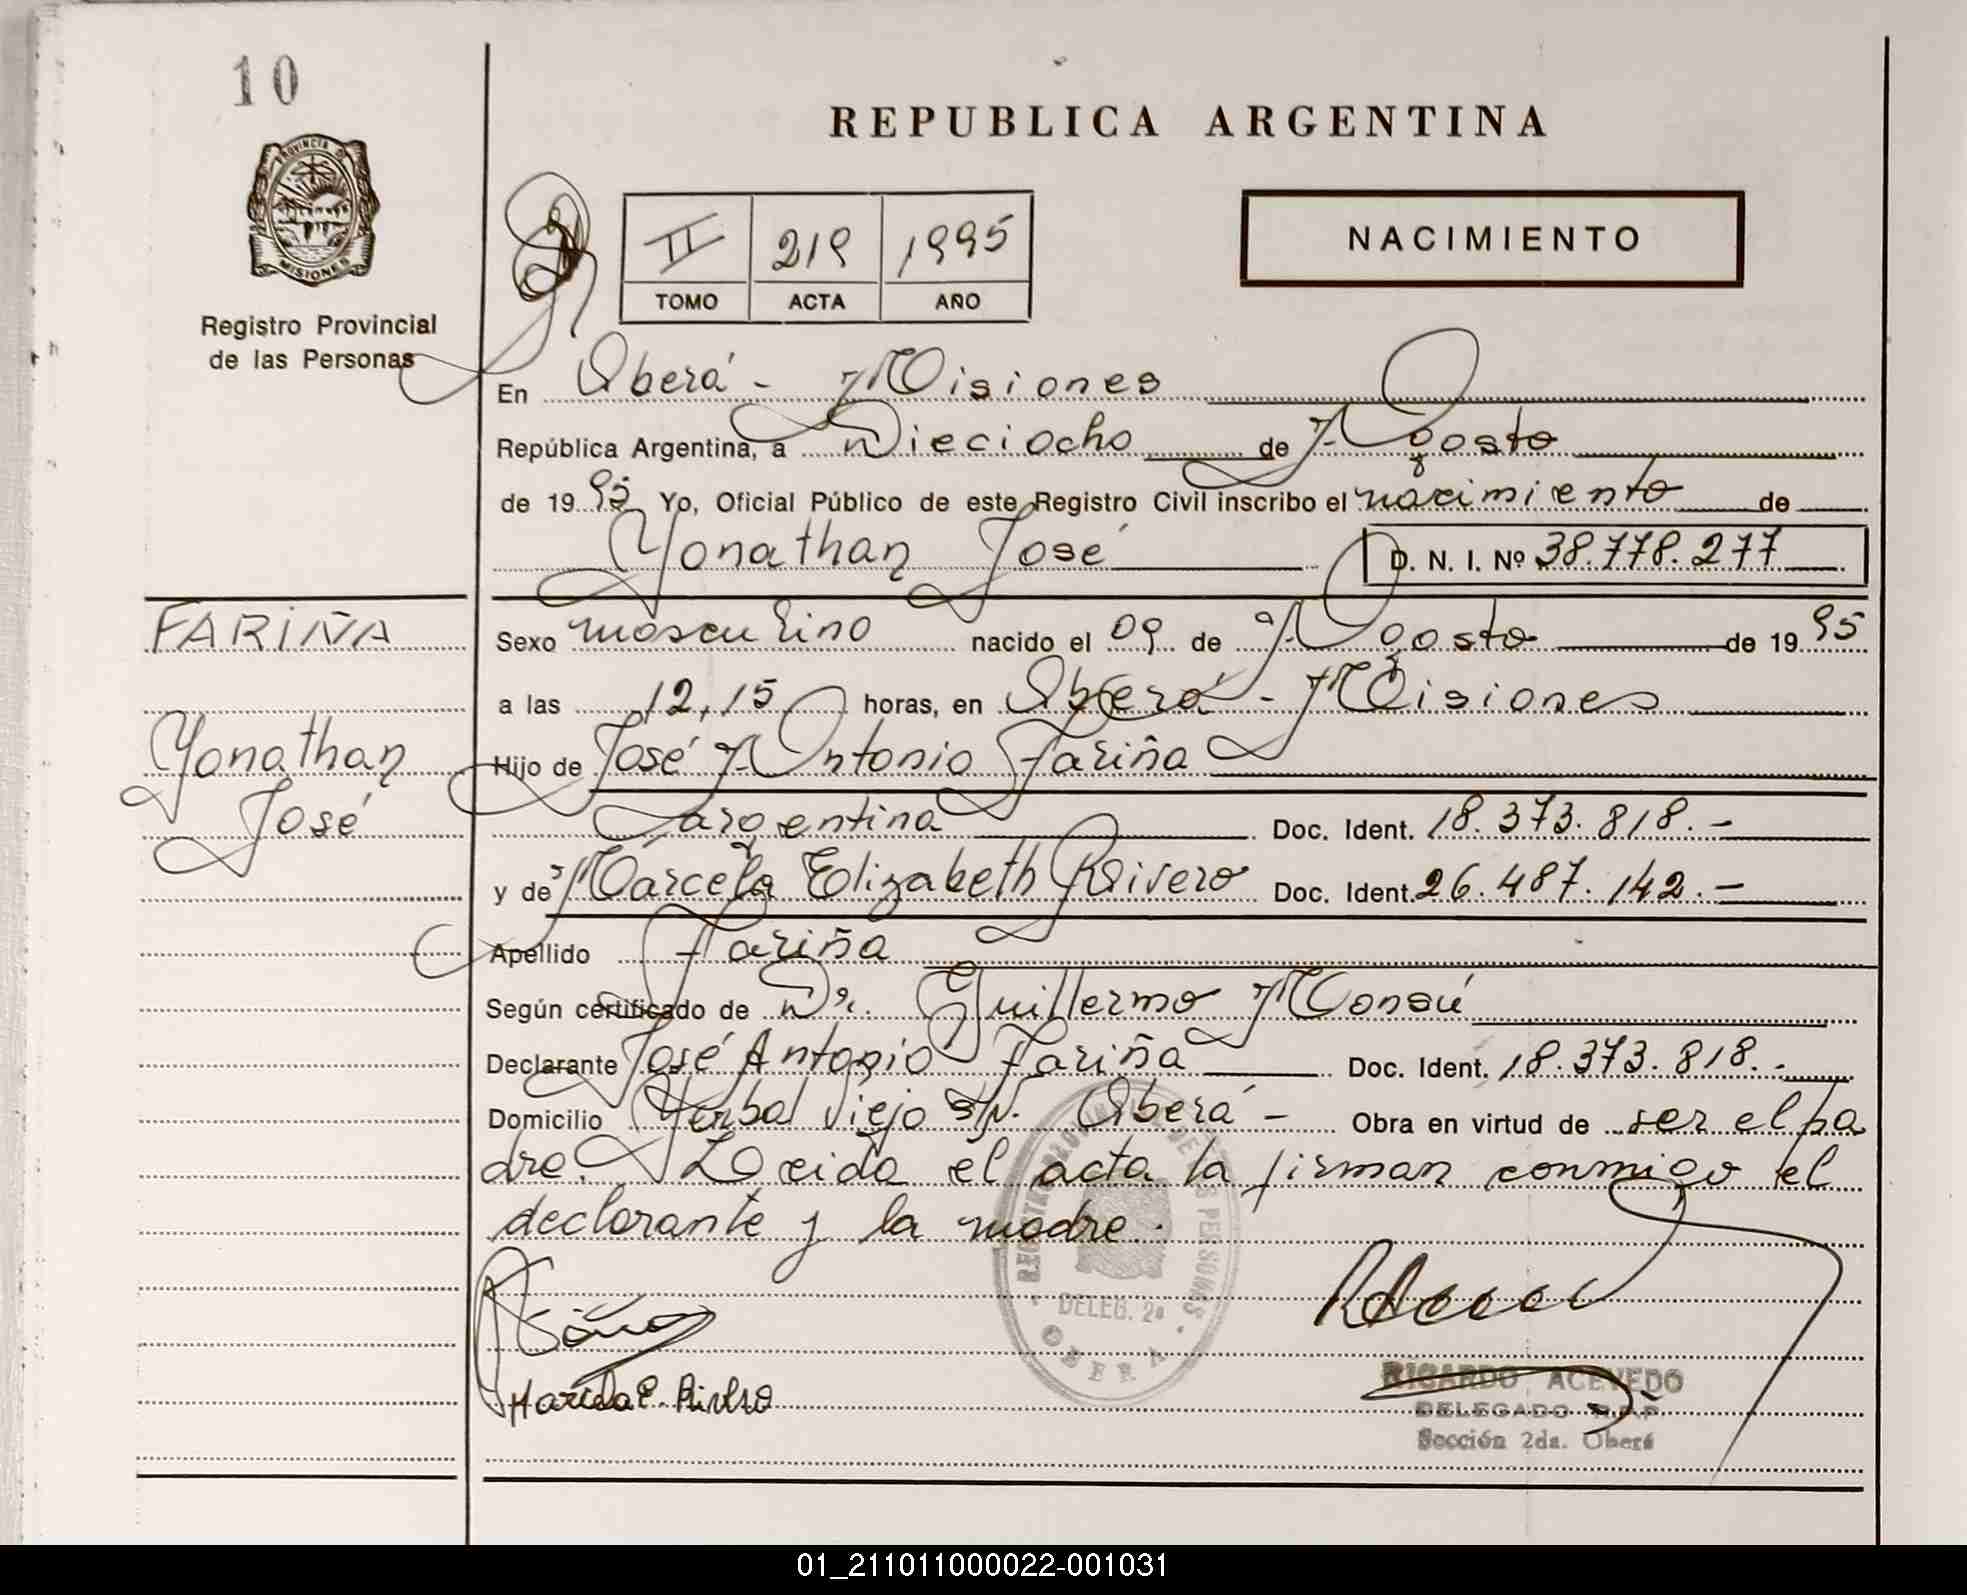 10
REPUBLICA ARGENTINA
PROVINCIA DE
MISIONES
Registro Provincial
de las Personas
II 219 1995
TOMO ACTA AÑO
NACIMIENTO
En Oberá - Misiones
República Argentina, a Dieciocho de Agosto
de 1995 Yo, Oficial Público de este Registro Civil inscribo el nacimiento de
Yonathan José D. N. I. Nº 38.778.277
FARIÑA
Yonathan
José
Sexo masculino nacido el 09 de Agosto de 1995
a las 12,15 horas, en Oberá - Misiones
Hijo de José Antonio Fariña
argentina Doc. Ident. 18.373.818.-
y de Marcela Elizabeth Rivero Doc. Ident. 26.487.142.-
Apellido Fariña
Según certificado de Dr. Guillermo Monsú
Declarante José Antonio Fariña Doc. Ident. 18.373.818.-
Domicilio Yerbal Viejo s/n. Oberá - Obra en virtud de ser el pa
dre. Leida el acta la firman conmigo el
declarante y la madre.
REGISTRO PROVINCIAL DE LAS PERSONAS
DELEG. 2ª
OBERA
Marcela E. Rivero
RICARDO ACEVEDO
DELEGADO R.P.P.
Sección 2da. Oberá
01_211011000022-001031